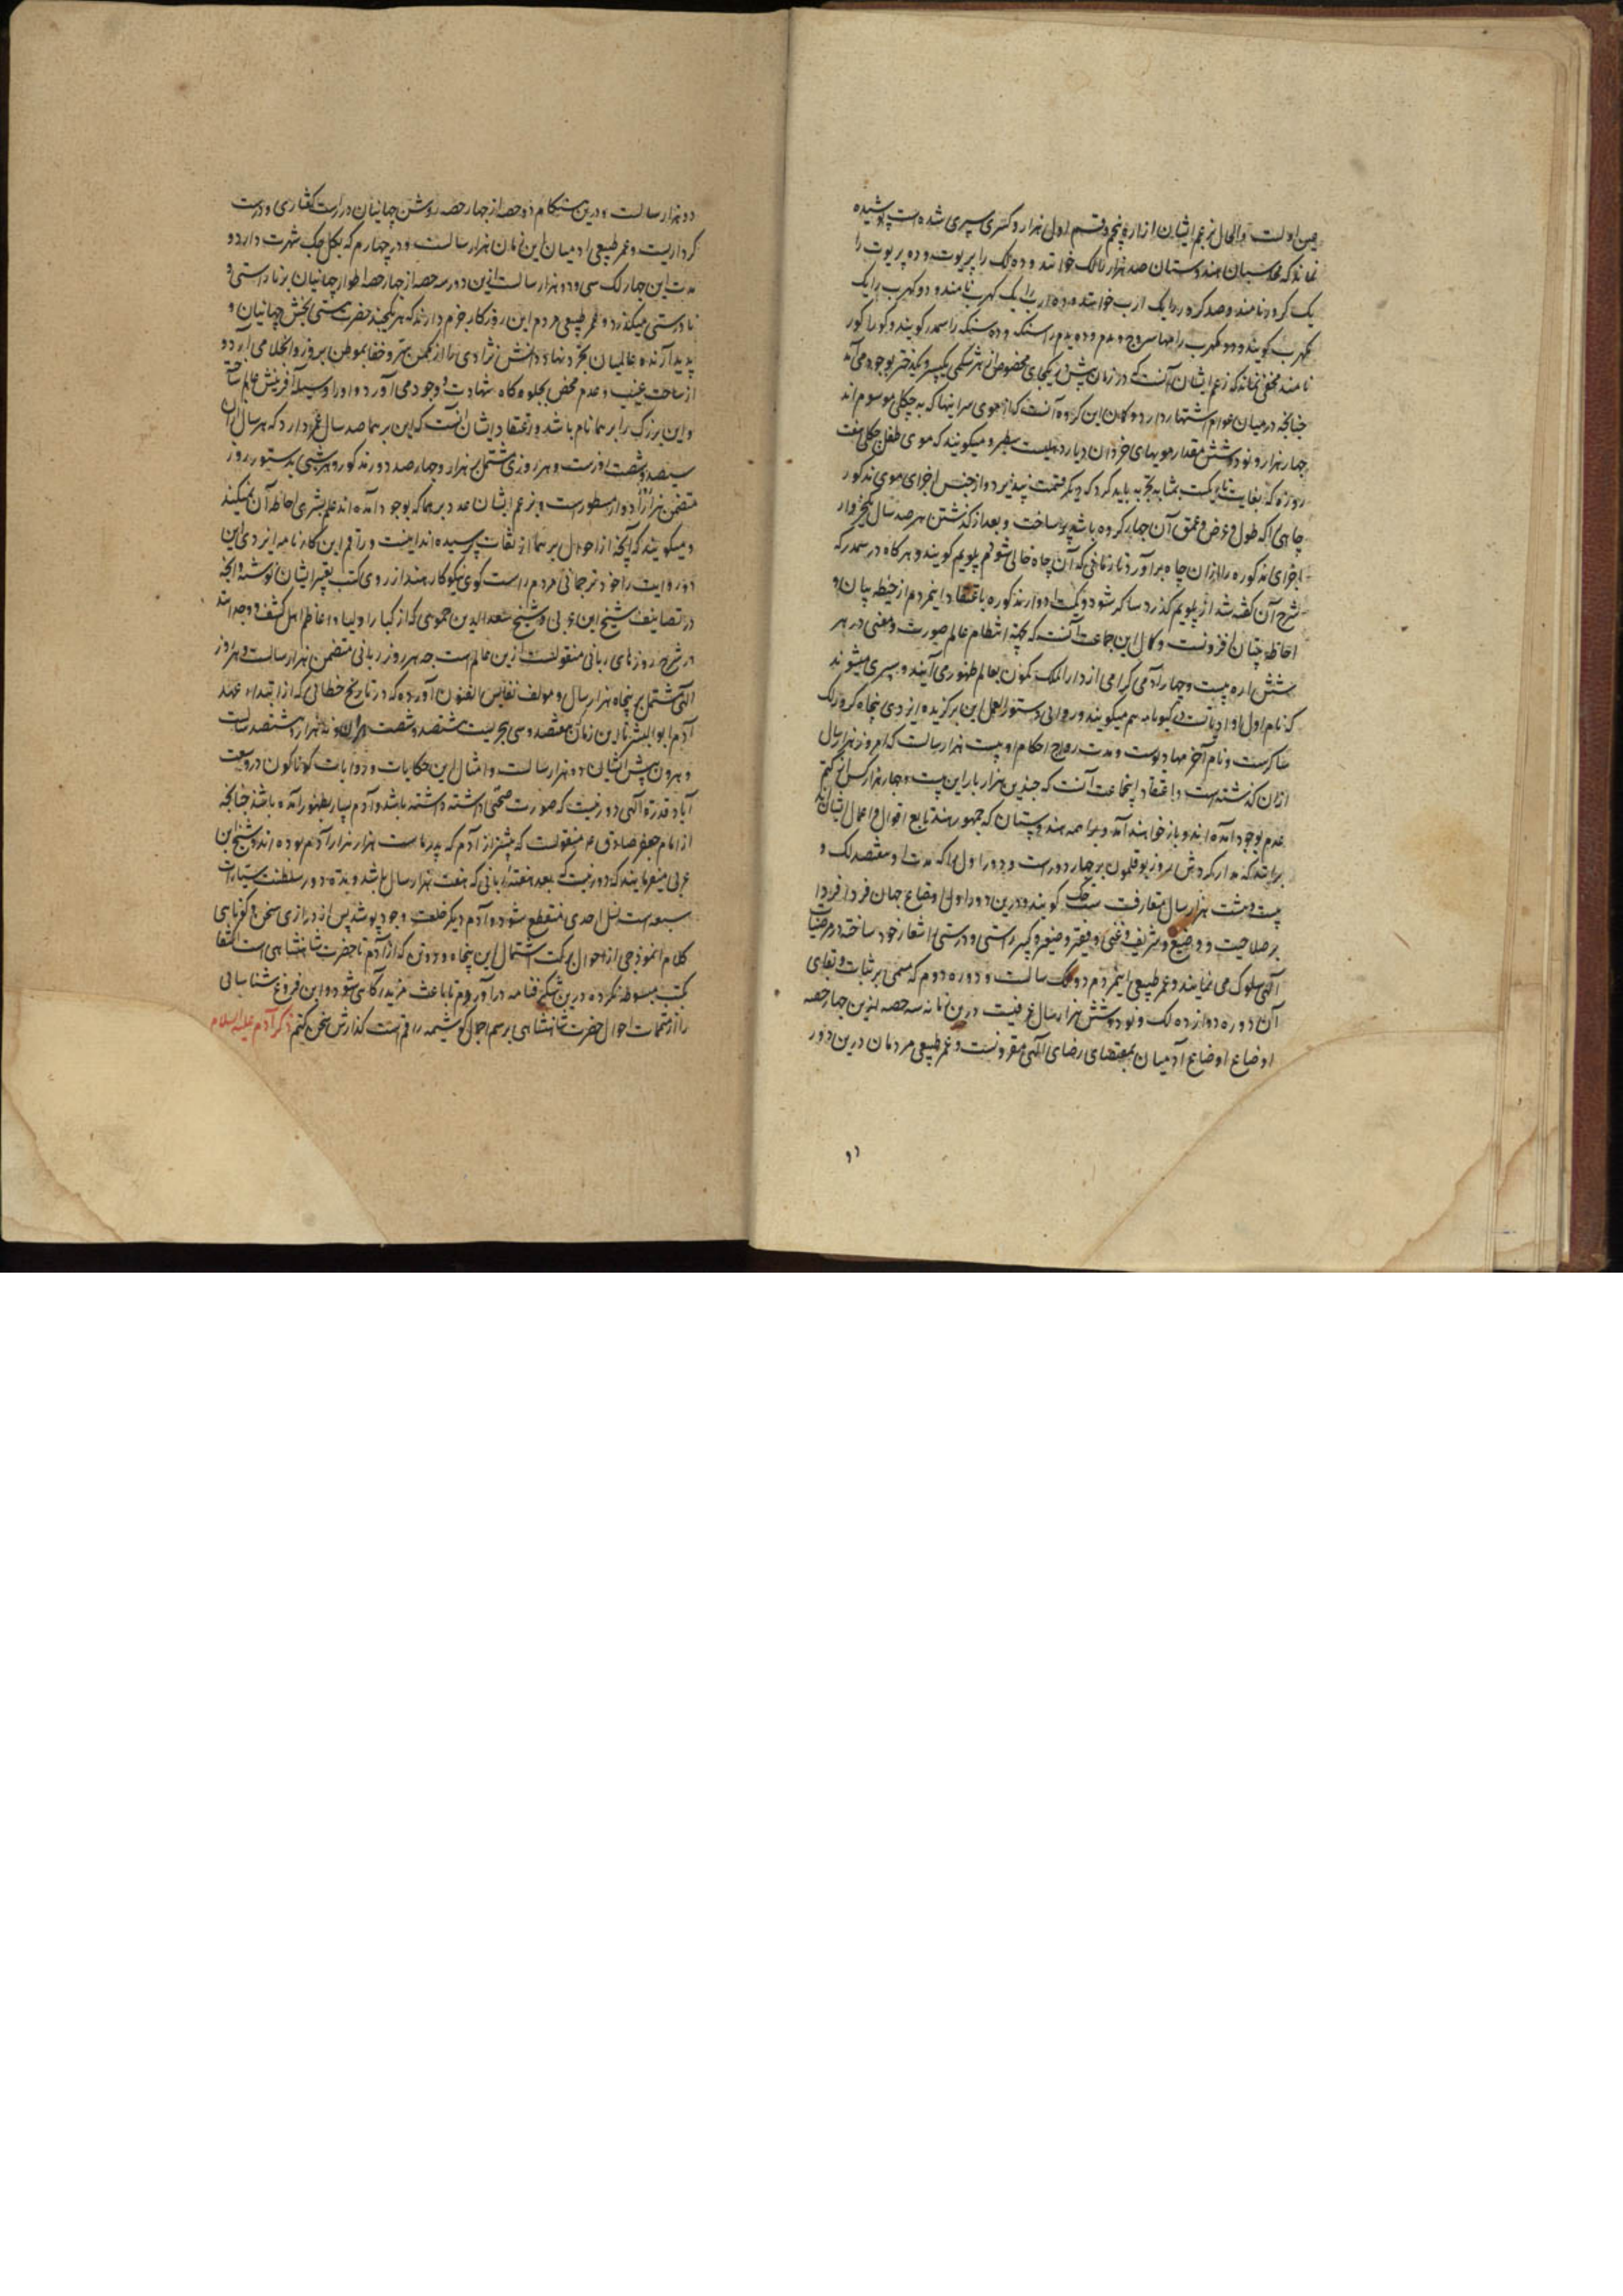 چین اولست و الحال بزعم ایشان از ارهٔ پنجم و قسم اول هزار و کسری سپری شده است پوشیده
نماند که محاسبان هندوستان صد هزار را لک خوانند و ده لک را پریوت و ده پریوت را
یک کرور نامند و صد کرور را یک ارب خوانند و ده ارب را یک کهرب نامند و دو کهرب را یک
نکهرب کویند و دو نکهرب را مهاسروج و پدم و ده پدم را سنکه و ده سنکه را سمدر کویند و کور را کور
نامند مخفی نماند که زعم ایشان آنست که در زمان پیش در یکجای مخصوص از هر شکمی یکپسر و یکدختر بوجود می‌آمد
چنانچه درمیان عوام اشتهار دارد و کمان این کروه آنست که از موی سر اینها که به جکلی موسوم اند
چهار هزار و نود و شش مقدار مویهای مردان دیار دهلیست سطبر و میکویند که موی طفل جکلی هفت
روزه که بغایت نازکست بمثابه تجزیه باید کرد که دیکر قسمت نپذیرد و از جنس اجزای موی مذکور
چاهی که طول و عرض و عمق آن چهار کروه باشد پر ساخت و بعد از کذشتن هر صد سال یکجزو از
اجزای مذکوره را از ان چاه برآورد تا زمانی که آن چاه خالی شود پلوپم کویند و هرکاه در سمدر که
شرح آن کفته شد از پلوپم کذرد ساکر شود و کمیت ادوار مذکوره باعتقاد اینمردم از حیطه بیان و
احاطه چنان افزونست و کمال این جماعت آنست که بجهة انتظام عالم صورت و معنی در هر
شش اره بیست و چهار آدمی کرامی از دارالملک کمون بعالم ظهور می‌آیند و سپری میشوند
که نام اول او ادناتست و رکهوناته هم میکویند و روائی دستورالعمل این برکزیده ایزدی پنجاه کرور لک
ساکرست و نام آخر مهادیوست و مدت رواج احکام او بیست هزار سالست که امروز دو هزار سال
از ان کذشته است و اعتقاد اینجماعت آنست که چندین هزار بار این بیست و چهار بزرک از کتم
عدم بوجود آمده اند و باز خواهند آمد و براهمه هندوستان که جمهور هند تابع اقوال و اعمال ایشان اند
برانند که مدار کردش امروز بوقلمون بر چهار دورست و دور اول را که مدت او هفتصد لک و
بیست و هشت هزار سال متعارفست ستجک کویند و درین دور اول اوضاع جهان فرداً فرداً
بر صلاحیت و وضیع و شریف و غنی و فقیر و صغیر و کبیر راستی و درستی را شعار خود ساخته در مرضیات
الهی سلوک می نمایند و عمر طبیعی اینمردم دو لک سالست و دوره دوم که مسمی بر ثبات و بقای
آن دوره دوازده لک و نود و شش هزار سال عرفیست درین زمانه سه حصه ازین چهار حصه
اوضاع اوضاع آدمیان بمقتضای رضای الهی مقرونست و عمر طبیعی مردمان درین دور
دو هزار سالست و درین هنکام دو حصه از چهار حصه روشن جهانیان در راست کفتاری و درست
کرداریست و عمر طبیعی ادمیان این زمان هزار سالست و در چهارم که بکل جک شهرت دارد و
مدت این چهار لک سی و دو هزار سالست از این دور سه حصه از چهار حصه اطوار جهانیان بر ناراستی و
نادرستی میکذرد و عمر طبیعی مردم این روزکار جزم دارند که هر یکچند حضرت هستی بخش جهانیان و
پدید آرنده عالمیان تجرد نهاد دانش نژادی را از مکمن تستر و خفا بموطن بروز و انجلا می آرد و
از ساحت غیب و عدم محض بجلوه کاه شهادت و وجود می آورد و او را وسیله آفرینش عالم ساخته
و این بزرک را برهما نام باشد و اعتقاد ایشان آنست که این برهما صد سال عمر دارد که هر سال ازان
سیصد و شصت روزست و هر روزی مشتمل بر هزار و چهارصد دور مذکور و هر شبی بدستور روز
متضمن هزاران ادوار مسطورست و بزعم ایشان عدد برهما که بوجود آمده اند علم بشری احاطه آن نمیکند
و میکویند که آنچه از احوال برهما از ثقات پرسیده اند اینست و راقم این کارنامه ایزدی این
دو روایت را خود ترجمانی مردم راست کوی نیکوکار هند از روی کتب معتبر ایشان نوشته و آنچه
در تصانیف شیخ ابن عربی و شیخ سعدالدین حموی که از کبار اولیا و اعاظم اهل کشف و وجد اند
در شرح روزهای ربانی منقولست ازین عالم است چه هر روز ربانی متضمن هزار سالست و هر روز
الهی مشتمل بر پنجاه هزار سال و مولف نفایس الفنون آورده که در تاریخ خطائی که از ابتداء عهد
آدم ابوالبشر تا این زمان هفتصد و سی هجریست هشتصد و شصت و سه ون و نه هزار و هشتصد سالست
و هر ون پیش ایشان ده هزار سالست و امثال این حکایات و روایات کوناکون در وسعت
آباد قدرة الهی دور نیست که صورت صحتی داشته باشد و آدم بسیار بظهور آمده باشد چنانچه
از امام جعفر صادق عم منقولست که پیشتر از آدم که پدر ماست هزار هزار آدم بوده اند و شیخ ابن
عربی میفرمایند که دور نیست که بعد هفته ربانی که هفت هزار سال باشد و مدة دور سلطنت سیارات
سبعه است نسل احدی منقطع شود و آدم دیکر خلعت وجود پوشد پس از درازی سخن و کوتاهی
کلام انموذجی از احوال برکت اشتمال این پنجاه و دو تن که از آدم تا حضرت شاهنشاهی است اکتفا
بکتب مبسوطه نکرده درین شکرفنامه درآورم تا باعث مزید آکاهی شود و این فروغ شناسائی
را از متممات احوال حضرت شاهنشاهی برسم اجمال کوشیمه راقم است کذارش سخن کنم ذکر آدم علیه السلام